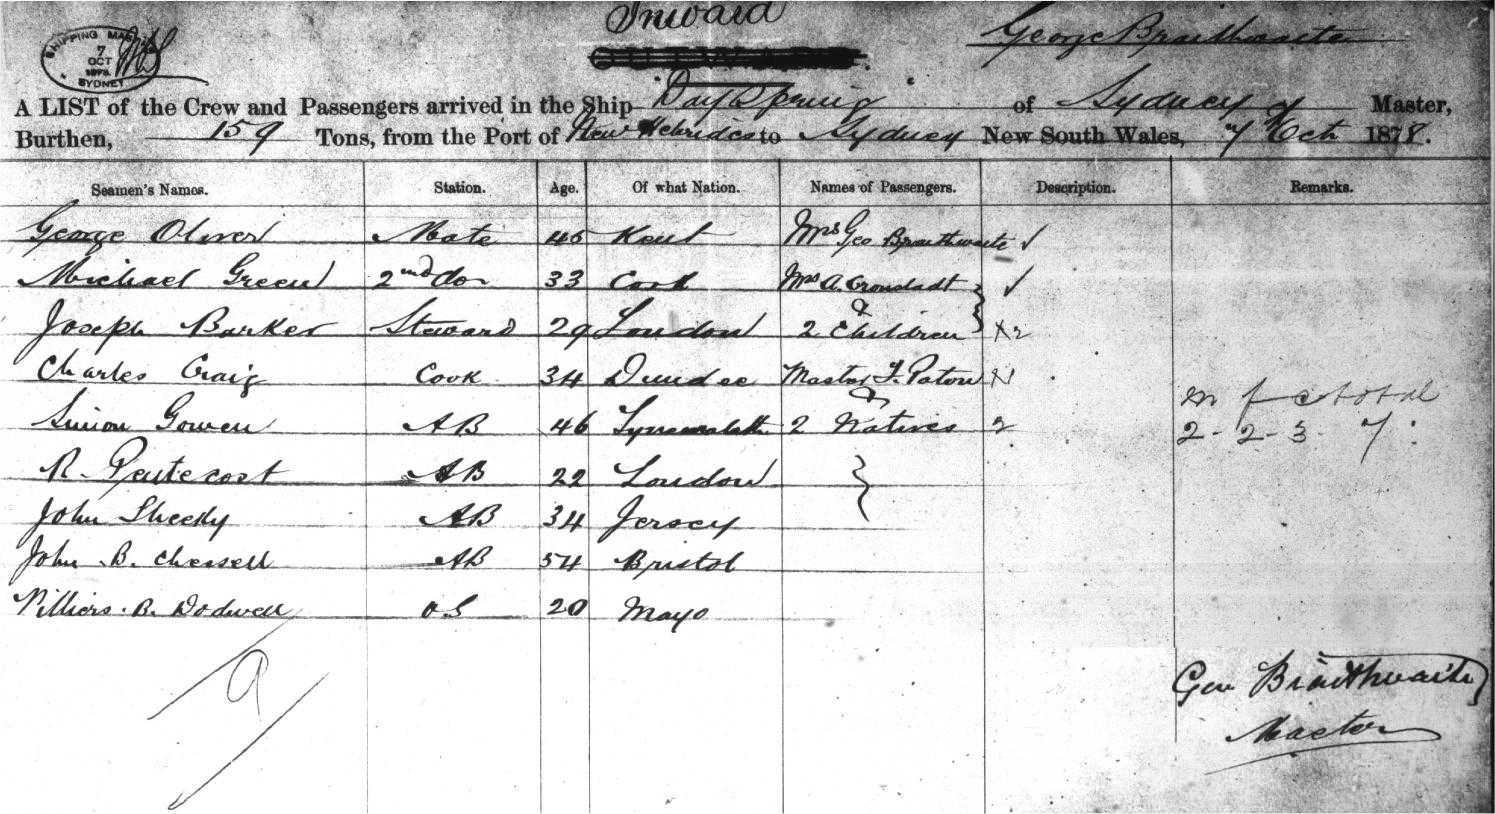 Inward
George Braithwaite
SHIPPING MAS
7
OCT
1878
SYDNEY
A LIST of the Crew and Passengers arrived in the Ship Day Spring of Sydney Master,
Burthen, 159 Tons, from the Port of New Hebrides to Sydney New South Wales, 7 Oct 1878.
Seamen's Names. Station. Age. Of what Nation. Names of Passengers. Description. Remarks.
George Oliver Mate 45 Kent Mrs Geo Braithwaite ✓
Michael Green 2nd do 33 Cork Mrs A. Cronstadt ✓
&
Joseph Barker Steward 29 London 2 Children x2
Charles Craig Cook 34 Dundee Master F. Paton
&
m f c total
Simon Gowen AB 46 2 Natives 2
2 - 2 - 3 - 7
R. Pentecost AB 22 London
John Sheedy AB 34 Jersey
John B. Chessell AB 54 Bristol
Villiers B. Dodwell OS 20 Mayo
9
Geo Braithwaite
Master